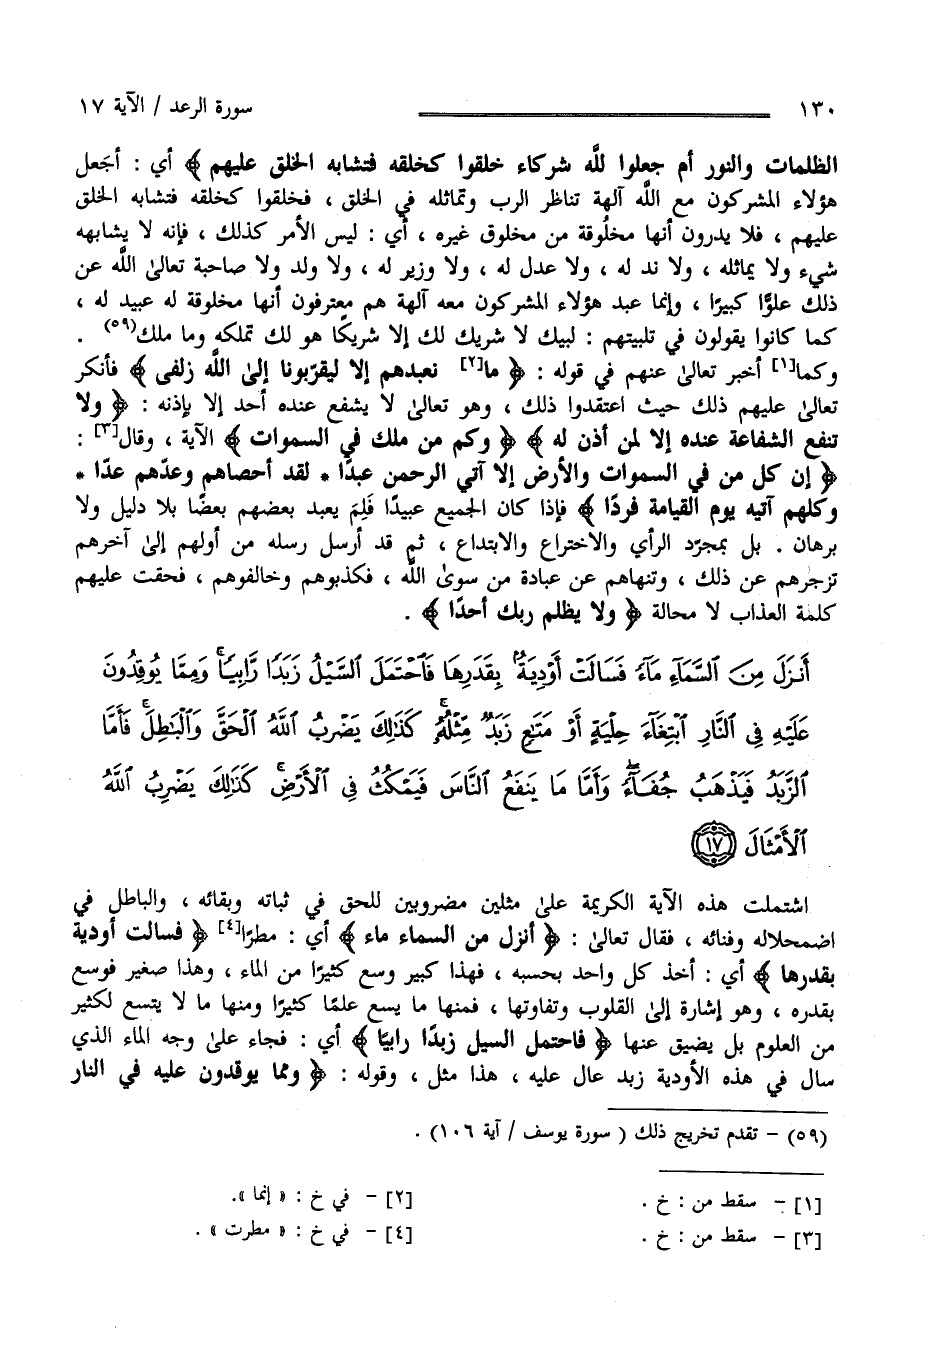 ١٣٠ سورة الرعد / الآية ١٧
الظلمات والنور أم جعلوا للَّه شركاء خلقوا كخلقه فتشابه الخلق عليهم ﴾ أي : أجَعل
هؤلاء المشركون مع اللَّه آلهة تناظر الرب وتماثله في الخلق ، فخلقوا كخلقه فتشابه الخلق
عليهم ، فلا يدرون أنها مخلُوقة من مخلوق غيره ، أي : ليس الأمر كذلك ، فإنه لا يشابهه
شيء ولا يماثله ، ولا ند له ، ولا عدل له ، ولا وزير له ، ولا ولد ولا صاحبة تعالىٰ اللَّه عن
ذلك علوًّا كبيرًا ، وإنما عبد هؤلاء المشركون معه آلهة هم معترفون أنها مخلوقة له عبيد له ،
كما كانوا يقولون في تلبيتهم : لبيك لا شريك لك إلا شريكًا هو لك تملكه وما ملك(٥٩) .
وكما[١] أخبر تعالىٰ عنهم في قوله : ﴿ ما[٢] نعبدهم إلا ليقرّبونا إلىٰ اللَّه زلفى ﴾ فأنكر
تعالىٰ عليهم ذلك حيث اعتقدوا ذلك ، وهو تعالىٰ لا يشفع عنده أحد إلا بإذنه : ﴿ ولا
تنفع الشفاعة عنده إلا لمن أذن له ﴾ ﴿ وكم من ملك في السموات ﴾ الآية ، وقال[٣] :
﴿ إن كل من في السموات والأرض إلا آتي الرحمن عبدًا * لقد أحصاهم وعدّهم عدًّا *
وكلهم آتيه يوم القيامة فردًا ﴾ فإذا كان الجميع عبيدًا فَلِمَ يعبد بعضهم بعضًا بلا دليل ولا
برهان . بل بمجرّد الرأي والاختراع والابتداع ، ثم قد أرسل رسله من أولهم إلىٰ آخرهم
تزجرهم عن ذلك ، وتنهاهم عن عبادة من سوىٰ اللَّه ، فكذبوهم وخالفوهم ، فحقت عليهم
كلمة العذاب لا محالة ﴿ ولا يظلم ربك أحدًا ﴾ .
أَنزَلَ مِنَ ٱلسَّمَآءِ مَآءً فَسَالَتْ أَوْدِيَةٌۢ بِقَدَرِهَا فَٱحْتَمَلَ ٱلسَّيْلُ زَبَدًا رَّابِيًا ۚ وَمِمَّا يُوقِدُونَ
عَلَيْهِ فِى ٱلنَّارِ ٱبْتِغَآءَ حِلْيَةٍ أَوْ مَتَٰعٍ زَبَدٌ مِّثْلُهُۥ ۚ كَذَٰلِكَ يَضْرِبُ ٱللَّهُ ٱلْحَقَّ وَٱلْبَٰطِلَ ۚ فَأَمَّا
ٱلزَّبَدُ فَيَذْهَبُ جُفَآءً ۖ وَأَمَّا مَا يَنفَعُ ٱلنَّاسَ فَيَمْكُثُ فِى ٱلْأَرْضِ ۚ كَذَٰلِكَ يَضْرِبُ ٱللَّهُ
ٱلْأَمْثَالَ ﴿١٧﴾
اشتملت هذه الآية الكريمة علىٰ مثلين مضروبين للحق في ثباته وبقائه ، والباطل في
اضمحلاله وفنائه ، فقال تعالىٰ : ﴿ أنزل من السماء ماء ﴾ أي : مطرًا[٤] ﴿ فسالت أودية
بقدرها ﴾ أي : أخذ كل واحد بحسبه ، فهذا كبير وسع كثيرًا من الماء ، وهذا صغير فوسع
بقدره ، وهو إشارة إلىٰ القلوب وتفاوتها ، فمنها ما يسع علمًا كثيرًا ومنها ما لا يتسع لكثير
من العلوم بل يضيق عنها ﴿ فاحتمل السيل زبدًا رابيًا ﴾ أي : فجاء علىٰ وجه الماء الذي
سال في هذه الأودية زبد عال عليه ، هذا مثل ، وقوله : ﴿ ومما يوقدون عليه في النار
(٥٩) - تقدم تخريج ذلك ( سورة يوسف / آية ١٠٦) .
[١] - سقط من : خ . [٢] - في خ : « إنما ».
[٣] - سقط من : خ . [٤] - في خ : « مطرت » .